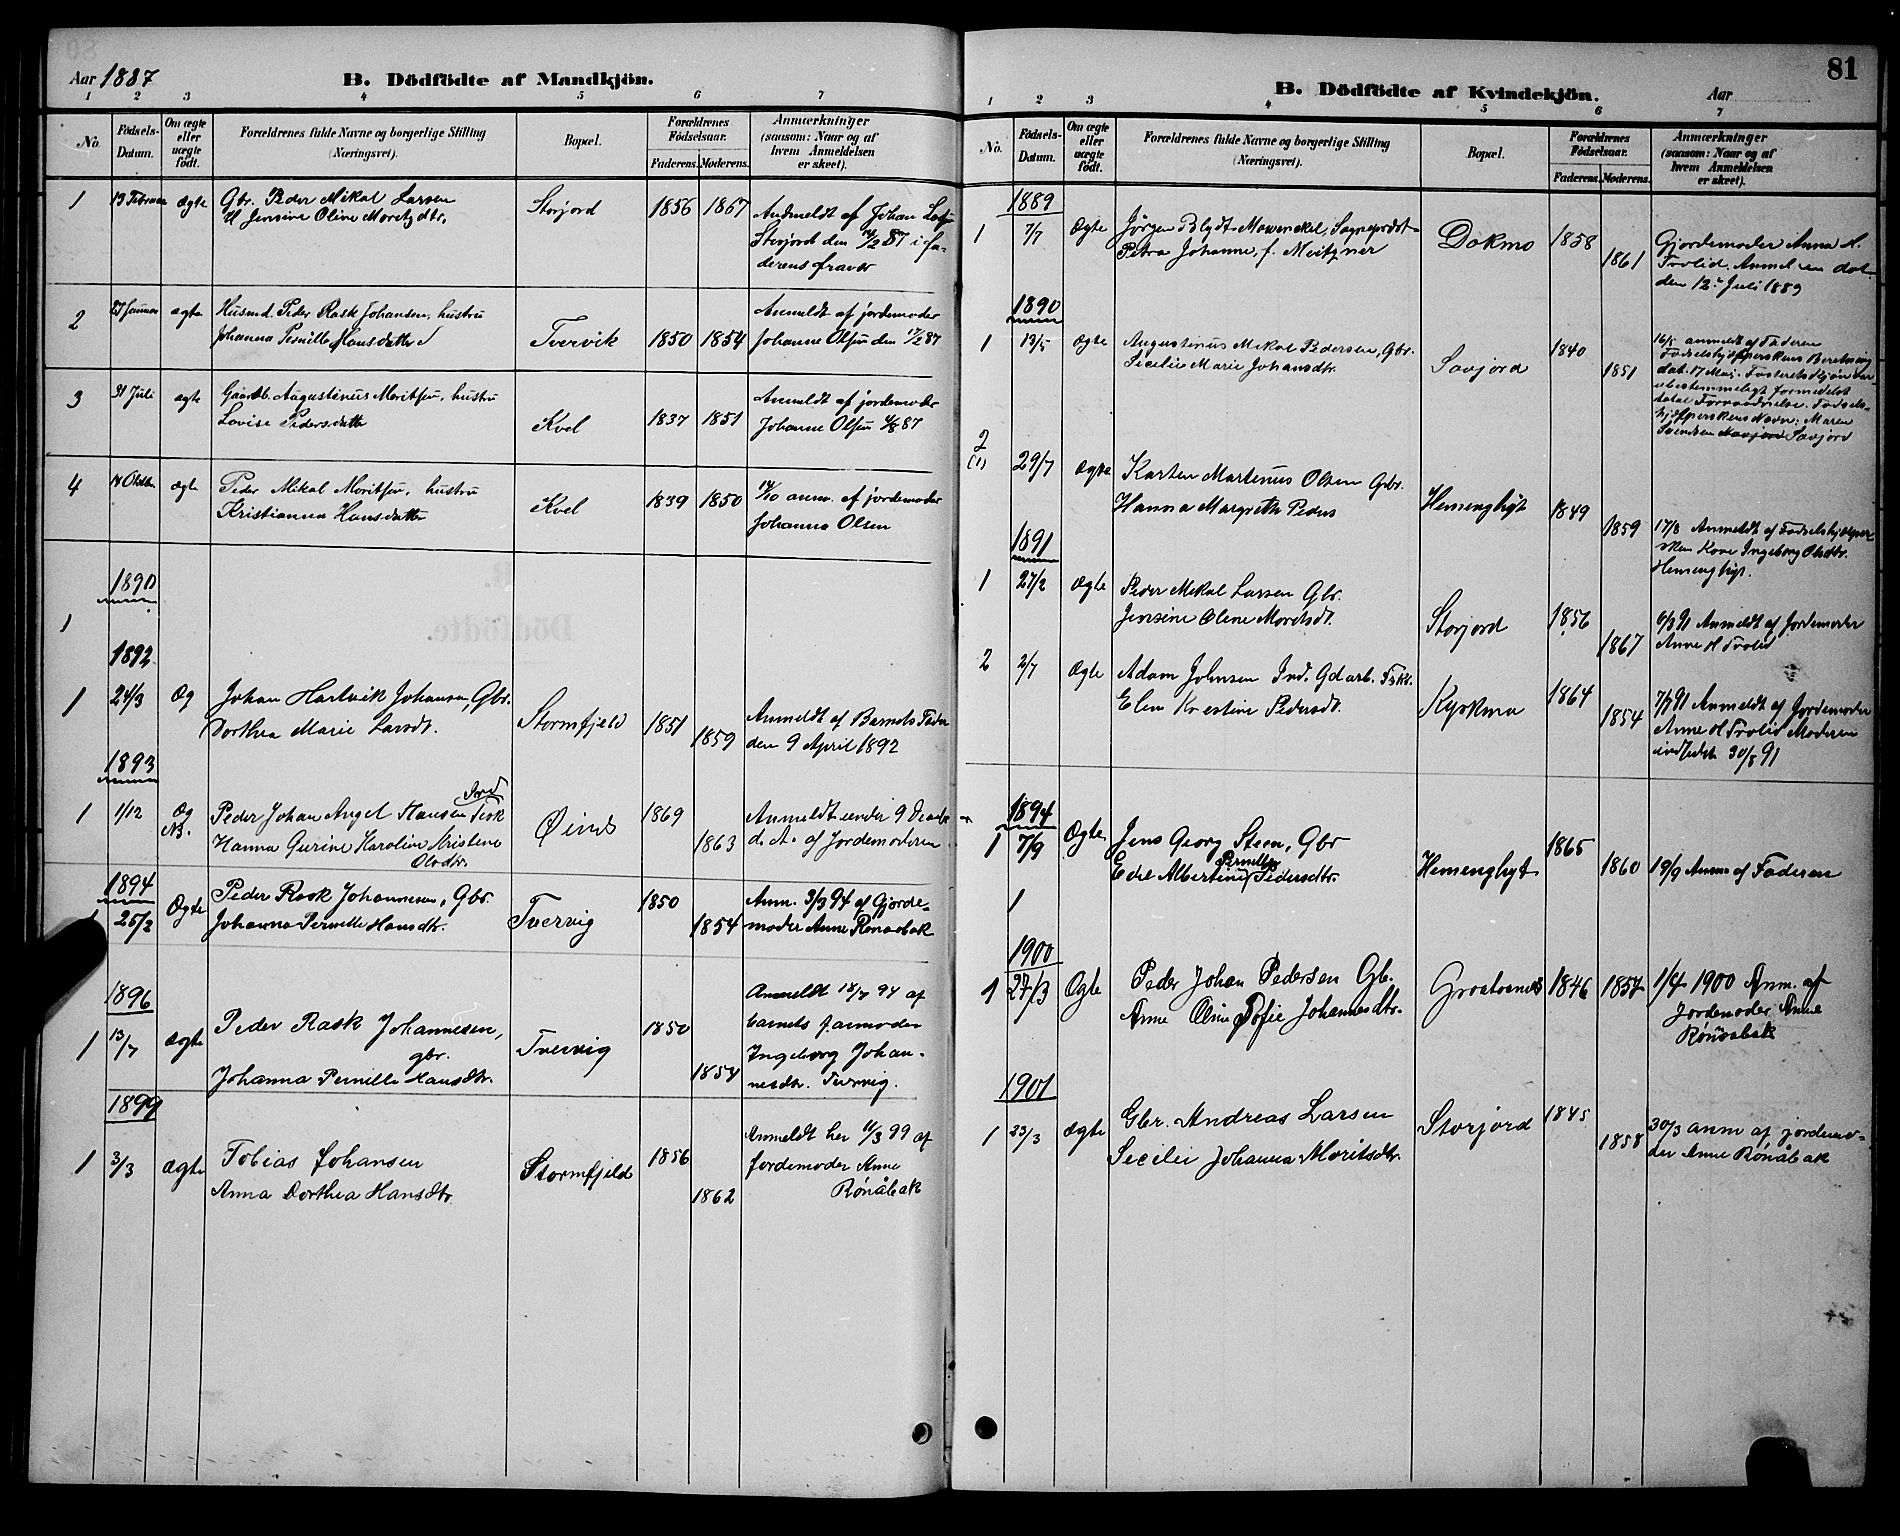 Aar 1887
B. Dödfödte af Mandkjön.
1 2 3 4 5 6 7
No. Fødsels-Datum. Om ægte eller uægte født. Forældrenes fulde Navne og borgerlige Stilling (Næringsvei). Bopæl. Forældrenes Fødselsaar. Faderens. Moderens. Anmærkninger (saasom: Naar og af hvem Anmeldelsen er skeet).
1 13 Februar ægte Gbr. Peder Mikal Larsen Storjord 1856 1867 Anmeldt af Johan
H. Jensine Oline Moretzdtr. Storjord den 14/2 87 i fa-
derens fravær
2 Januar ægte Husmd. Peder Rask Johansen, hustru Anmeldt af jordemoder
Johanna Pernille Hansdatter Tvervik 1850 1854 Johanne Olsen den 17/2 87
3 31 Juli ægte Gaardb. Augustinus Moritsen, hustru Anmeldt af jordemoder
Lovise Pedersdatter Kvel 1837 1851 Johanne Olsen 4/8 87
4 14 Oktbr. ægte Peder Mikal Moritsen, hustru Kvel 1839 1850 17/10 anm. af jordemoder
Kristianna Hansdatter Johanna Olsen
1890
1
1892
1 24/3 Æg Johan Hartvik Johansen, Gbr. Stormfjeld 1851 Anmeldt af Barnets Fader
Dorthea Marie Larsdt. 1859 den 9 April 1892
1893
1 1/12 Æg Peder Johan Angel Hansen Ind. Fisk Øines 1869 Anmeldt under 9 Decbr
NB. Hanna Gurine Karoline Kristene 1863 d. A. af Jordemoderen
Olsdtr.
1894
1 25/2 Ægte Peder Rask Johannesen, Gbr. Tvervig 1850 Anm. 3/3 94 af Gjorde-
Johanna Pernille Hansdtr. 1854 moder Anne Rønaabak
1896
1 13/7 ægte Peder Rask Johannesen, Tvervig 1850 Anmeldt 18/7 94 af
gbr. barnets farmoder
Johanna Pernille Hansdtr. 1854 Ingeborg Johan-
nesdtr. Tvervig.
1899
1 3/3 ægte Tobias Johansen Stormfjeld 1856 Anmeldt her 11/3 99 af
Anna Dorthea Hansdtr. 1862 jordemoder Anne
Rønåbak
81
B. Dödfödte af Kvindekjön.
Aar
1 2 3 4 5 6 7
No. Fødsels-Datum. Om ægte eller uægte født. Forældrenes fulde Navne og borgerlige Stilling (Næringsvei). Bopæl. Forældrenes Fødselsaar. Faderens. Moderens. Anmærkninger (saasom: Naar og af hvem Anmeldelsen er skeet).
1889
1 7/7 Ægte Jørgen Blydt Mowinckel, Sogneprest Dokmo 1858 Gjordemoder Anna H.
Petra Johanne, f. Meitzner 1861 Trolid. Anmel
den 12. Juli 1889
1890
1 13/5 Ægte Augustenus Mekal Pedersen, Gbr. Savjord 1840 16/5 anmeldt af Faderen
Sicilie Marie Johansdtr. 1851 Fødselshjælperskens Beretning
dat. 17 Maj. Fosterets Kjøn var
ubestemmeligt formedelst
total Forraadnelse. Fødsels-
hjælperskens Navn: Maren
Svendsen Navjord Savjord
2 (1) 29/7 Ægte Karsten Martenus Olsen Gbr. Hemenghyt 1849
Hanna Margrethe Peders 1859 17/8 Anmeldt af Fødselshjelper
sken Kone Ingeborg Olsdtr.
Hemenghyt.
1891
1 27/2 Ægte Peder Mekal Larsen Gbr. Storjord 1856 6/3 91 Anmeldt af Jordemoder
Jensine Olene Moretsdt. 1867 Anne H Trolid
2 2/7 Ægte Adam Johnsen Ind. Gdarb. Fskr. 1864
Elen Krestine Pedersdt. 1854 7/7 91 Anmeldt af Jordemoder
Anne H Trolid Moderen
indledet 30/8 91
1894
1 7/9 Ægte Jens Georg Steen, Gbr Hemenghyt 1865
Edel Albertine Pernille Pedersdtr. 1860 19/9 Anm. af Faderen
1
1900
1 27/3 Ægte Peder Johan Pedersen Gb. 1846 1857 1/4 1900 Anm. af
Anne Oline Sofie Johannesdtr. Jordemoder Anne
Rönaabak
1901
1 23/3 ægte Gbr. Andreas Larsen Storjord 1845 30/3 anm af jordemo-
Secilie Johanna Moritsdtr. 1858 der Anne Rönåbak